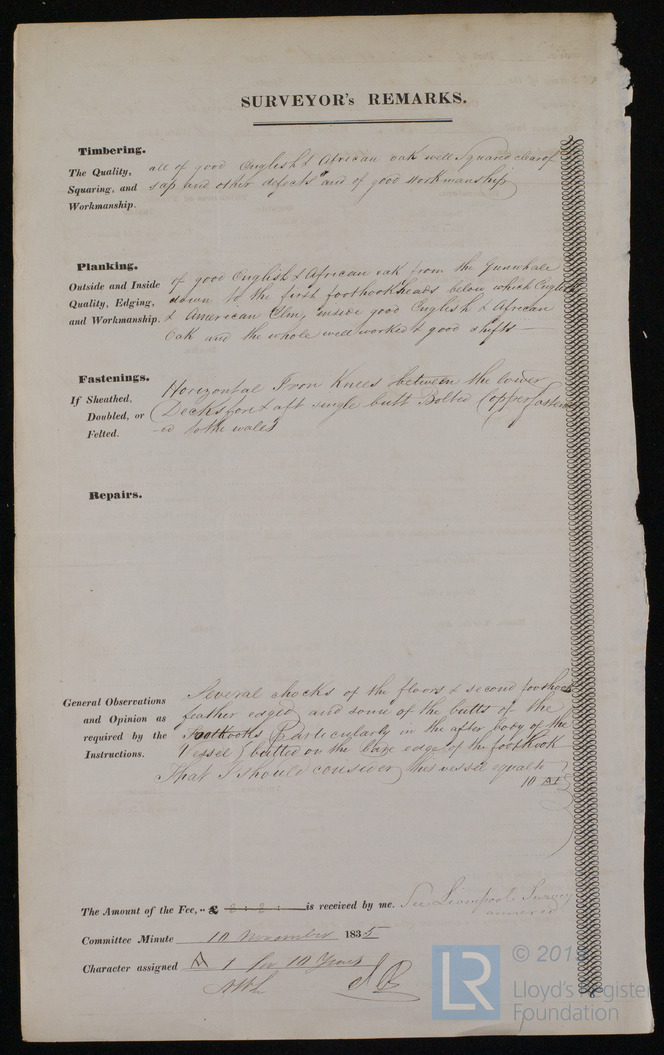 SURVEYOR's REMARKS.
Timbering.
The Quality, Squaring, and Workmanship.
all of good English & African oak well Squared clear of
sap and other defects and of good workmanship
Planking.
Outside and Inside Quality, Edging, and Workmanship.
of good English & African oak from the Gunwhale
down to the first foothookheads below which English
& American Elm, inside good English & African
Oak and the whole well worked & good shifts
Fastenings.
If Sheathed, Doubled, or Felted.
Horizontal Iron Knees between the lower
Decks fore & aft single butt Bolted Copper fasten
ed to the wales
Repairs.
General Observations and Opinion as required by the Instructions.
Several chocks of the floors & second foothook
feather edged and some of the butts of the
Foothooks (Particularly in the after body of the
Vessel) butted on the bare edge of the foothook
That I should consider this vessel equal to
10 A1
The Amount of the Fee, .. £ 2 : 2 : is received by me. See Liverpool Survey
annexed
Committee Minute 10 November 1835
Character assigned A 1 for 10 Years
LR
© 2019
Lloyd's Register
Foundation